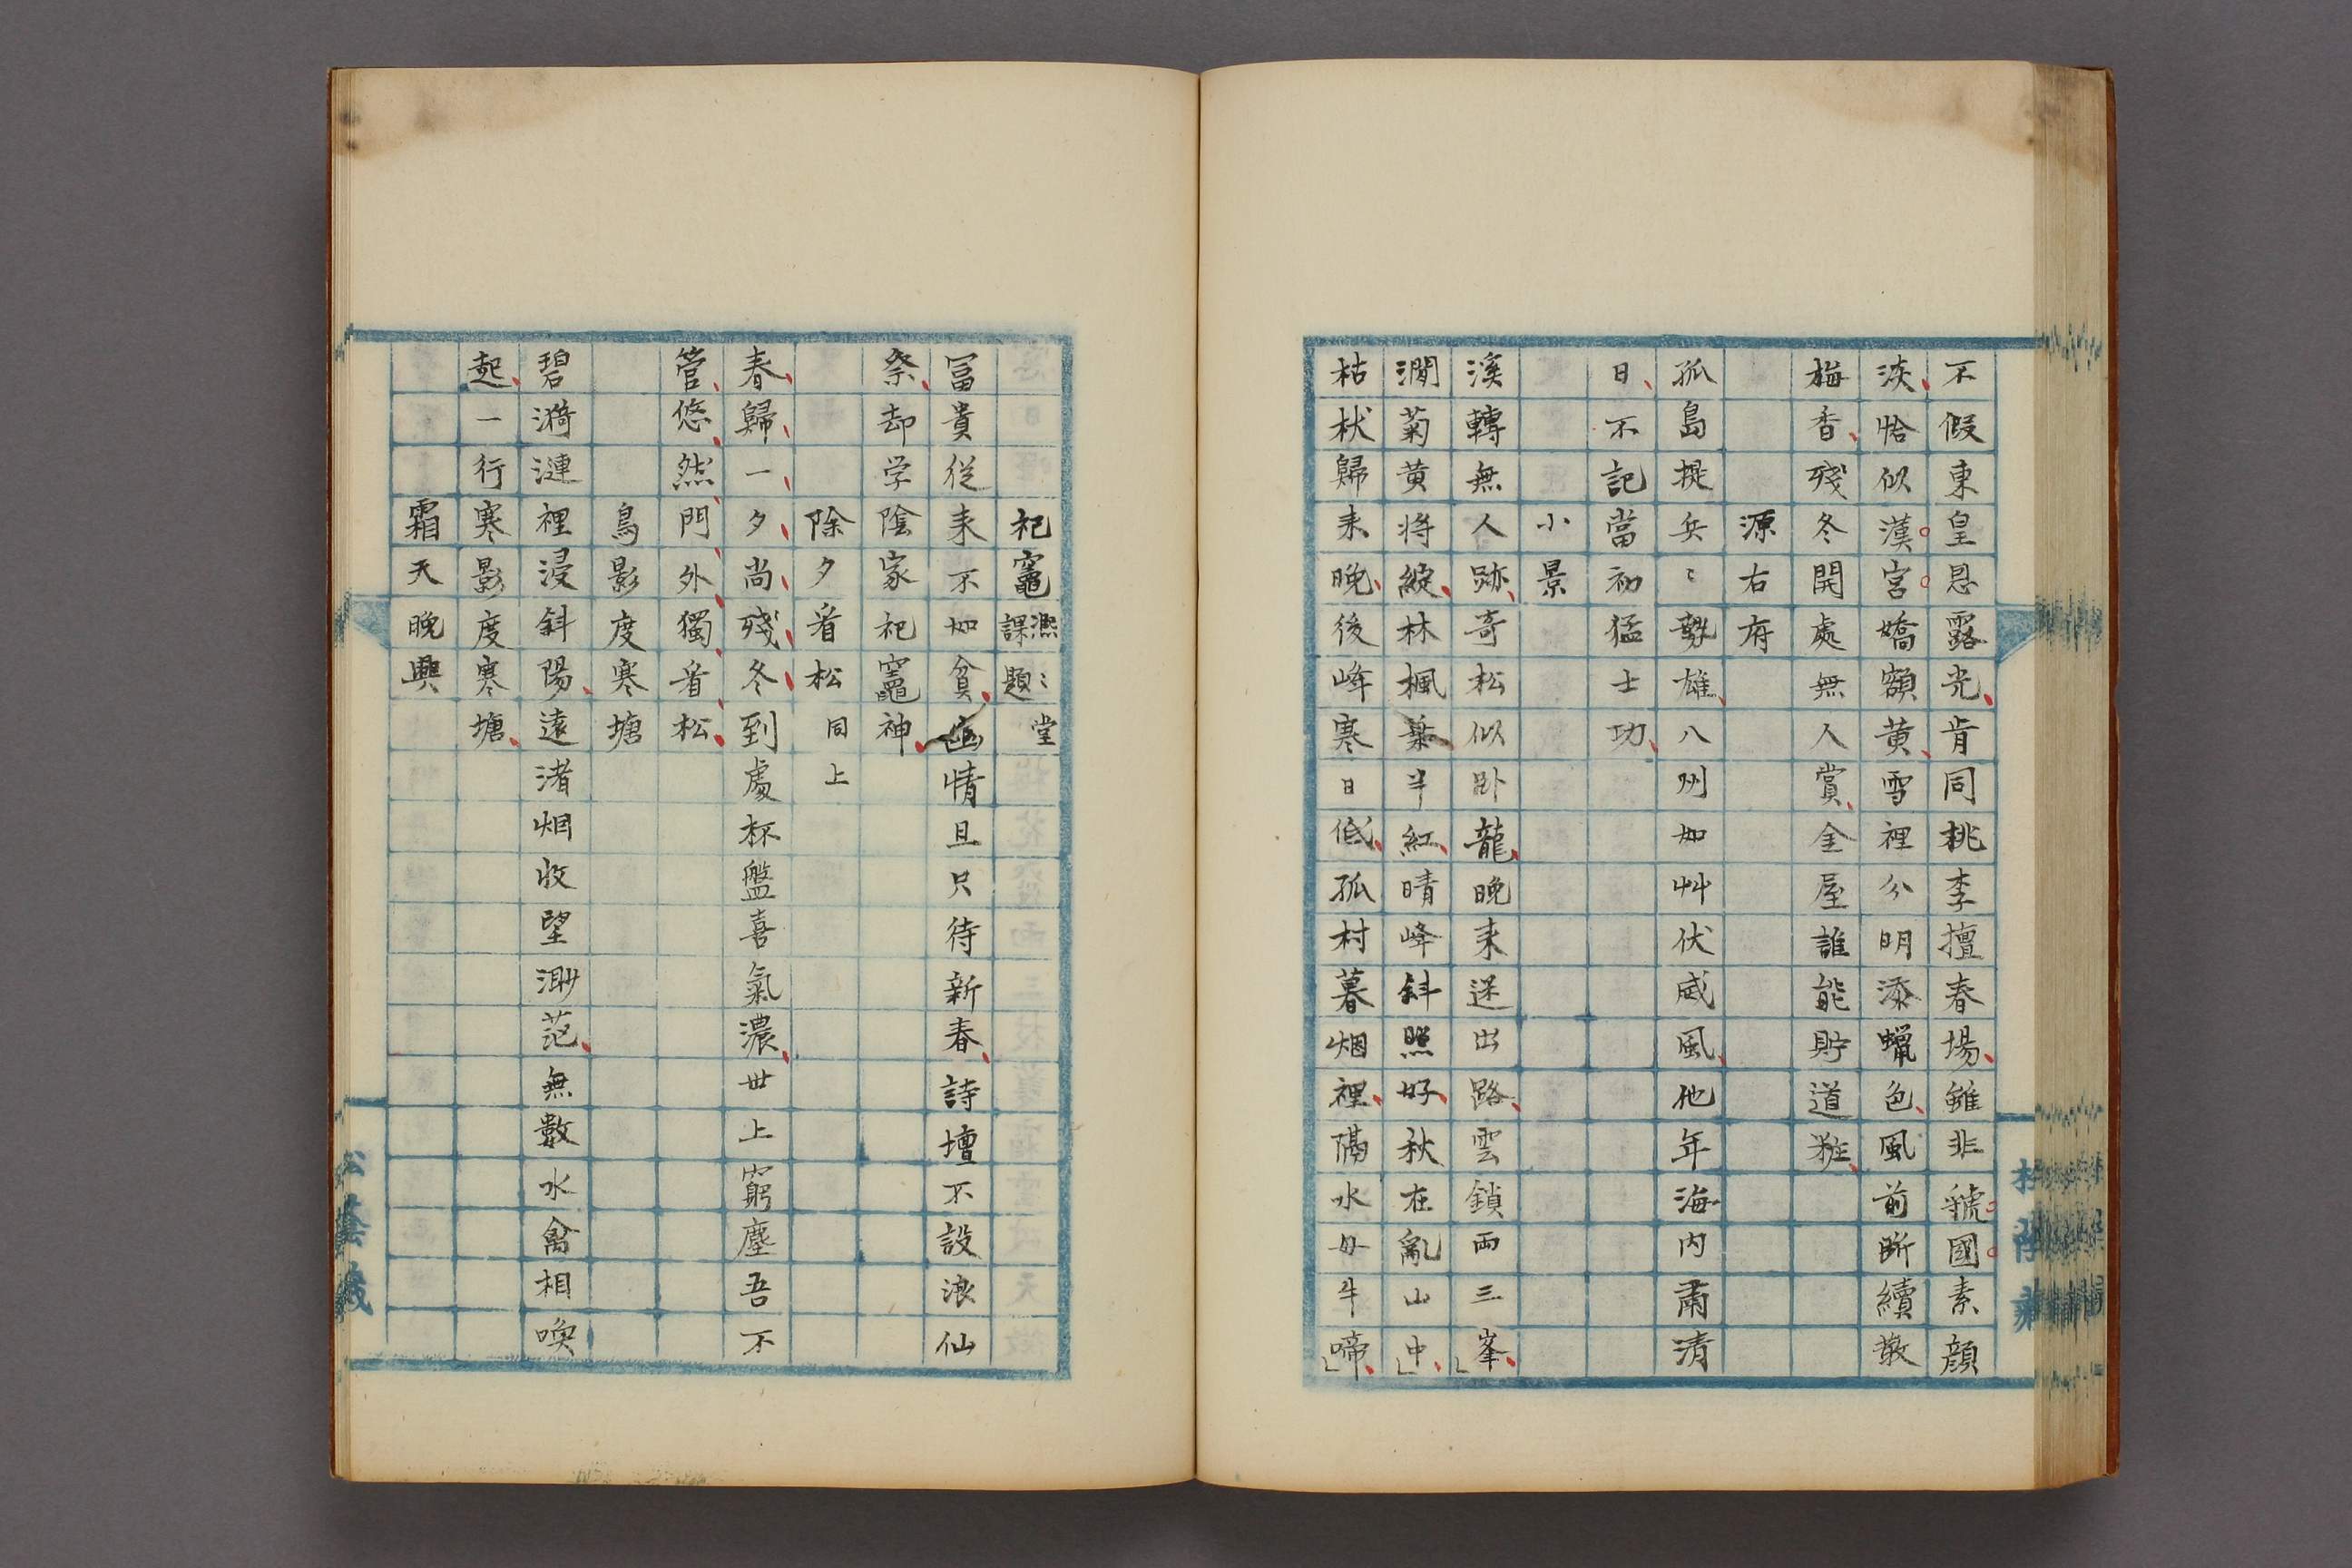 不假東皇恩露光肯同桃李擅春場雖非虢國素顔
淡恰似漢宮嬌額黄雪裡分明添蠟色風前断續散
梅香殘冬開處無人賞金屋誰能貯道粧
源右府
孤島提兵〻勢雄八州如艸伏威風他年海内肅清
日不記當初猛士功
小景
溪轉無人跡奇松似卧龍晩来迷出路雲鎖両三峯
澗菊黄将綻林楓葉半紅晴峰斜照好秋在亂山中
枯杖歸来晩後峰寒日低孤村暮烟裡隔水母牛啼
祀竈凞〻堂課題
冨貴從来不如貧幽情且只待新春詩壇不設浪仙
祭却学陰家祀竈神
除夕看松同上
春歸一夕尚殘冬到處杯盤喜氣濃世上窮塵吾不
管悠然門外獨看松
鳥影度寒塘
碧漪漣裡浸斜陽遠渚烟收望渺茫無數水禽相喚
起一行寒影度寒塘
霜天晩興